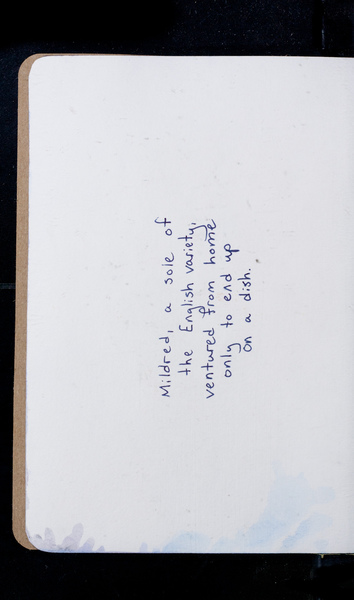 Mildred, a sole of
the English variety,
ventured from home
only to end up
on a dish.